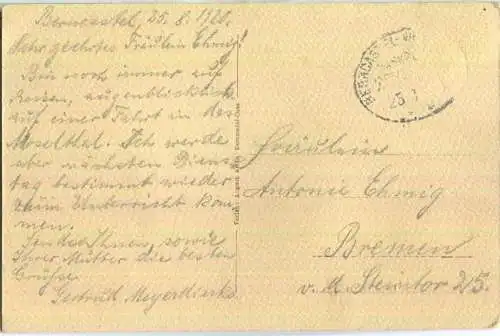 Berncastel, 25. 8. 1920.
Sehr geehrtes Fräulein Ehmig!
Bin noch immer auf
Reisen, augenblicklich
auf einer Fahrt in das
Moselthal. Ich werde
aber nächsten Diens-
tag bestimmt wieder
zum Unterricht kom-
men.
Sende Ihnen, sowie
Ihrer Mutter die besten
Grüße
Gertrud Meyerdierks.
BERNCASTEL
25
Fräulein
Antonie Ehmig
Bremen
v. d. Steintor 215.